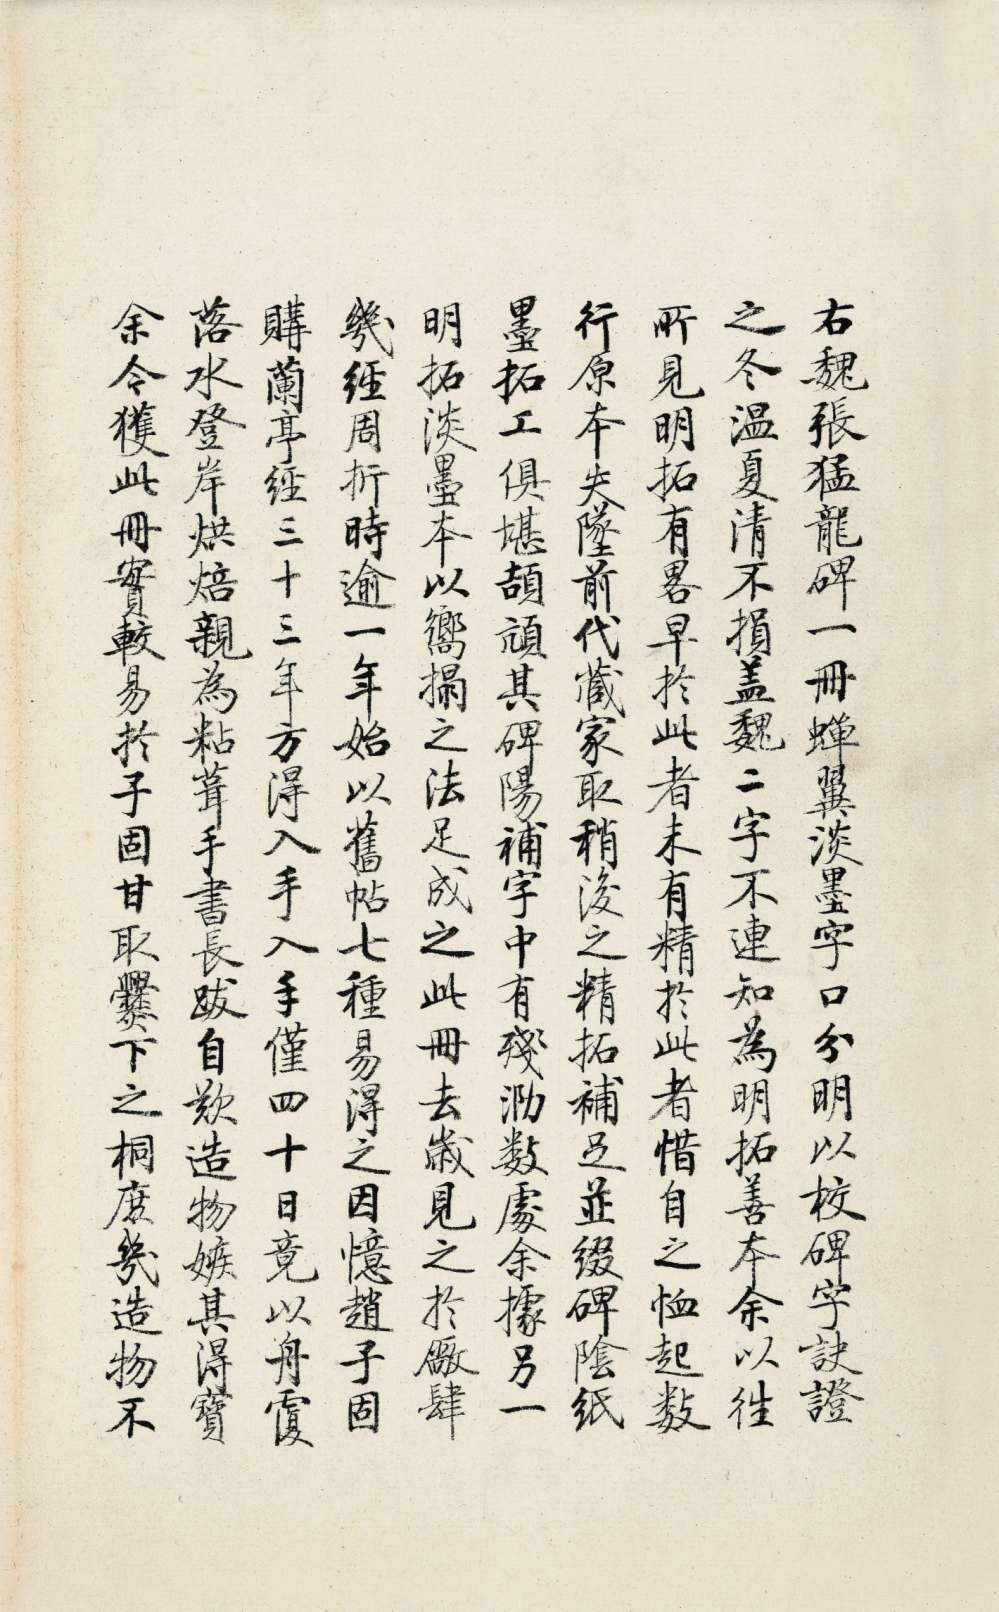 右魏張猛龍碑一冊蟬翼淡墨字口分明以校碑字訣證
之冬温夏清不損盖魏二字不連知為明拓善本余以往
所見明拓有畧早於此者未有精於此者惜自之恤起数
行原本失墜前代藏家取稍後之精拓補足並綴碑陰紙
墨拓工俱堪頡頏其碑陽補字中有殘泐数處余據另一
明拓淡墨本以嚮搨之法足成之此冊去歲見之於廠肆
幾經周折時逾一年始以舊帖七種易得之因憶趙子固
購蘭亭經三十三年方得入手入手僅四十日竟以舟覆
落水登岸烘焙親為粘葺手書長跋自歎造物嫉其得寶
余今獲此冊實較易於子固甘取爨下之桐庶幾造物不